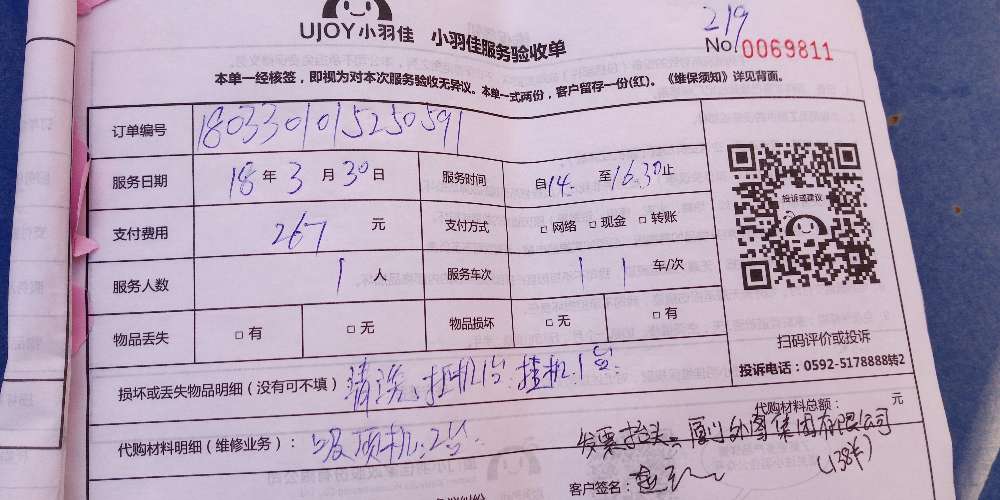 219
UJOY小羽佳 小羽佳服务验收单
No 0069811
本单一经核签，即视为对本次服务验收无异议。本单一式两份，客户留存一份(红)。《维保须知》详见背面。
订单编号 1803301015250591
服务日期 18 年 3 月 30 日 服务时间 自14. 至16.30止
支付费用 267 元 支付方式 □网络 □现金 □转账
投诉或建议
服务人数 1 人 服务车次 1 1 车/次
物品丢失 □有 □无 物品损坏 □无 □有
扫码评价或投诉
投诉电话：0592-5178888转2
损坏或丢失物品明细（没有可不填） 清洗 挂机1台 挂机1台
代购材料总额： 元
代购材料明细（维修业务）： 吸顶机2台
发票抬头 厦门外图集团有限公司
客户签名：